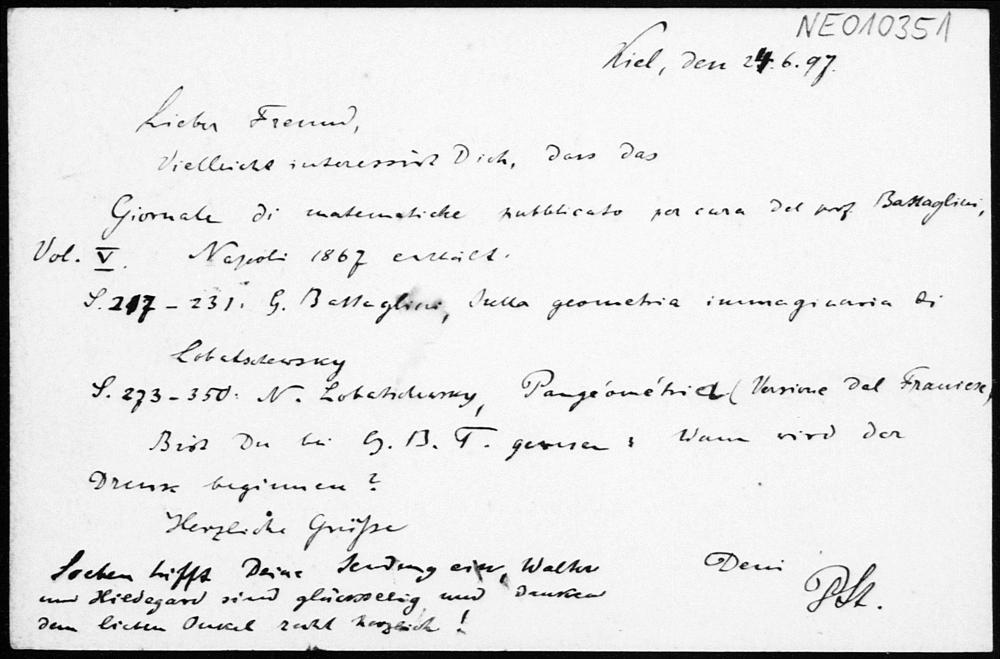 NEO10351
Kiel, den 24.6.97.
Lieber Freund,
Vielleicht interessirt Dich, dass das
Giornale di matematiche pubblicato per cura del prof. Battaglini,
Vol. V. Napoli 1867 enthält.
S. 217–231. G. Battaglini, Sulla geometria immaginaria di
Lobatschewsky
S. 273–350. N. Lobatschewsky, Pangéométrie (Versione dal Francese)
Bist Du bei G. B. T. gewesen? Wann wird der
Druck beginnen?
Herzliche Grüsse
Dein
P St.
Soeben trifft Deine Sendung ein, Walter
und Hildegard sind glückselig und danken
dem lieben Onkel recht herzlich!